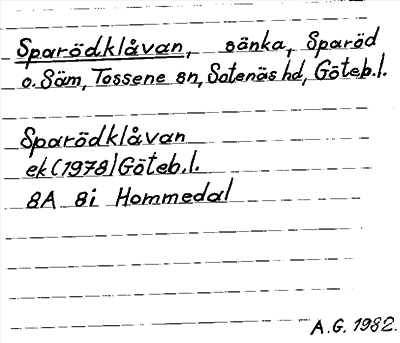 Sparödklåvan, sänka, Sparöd
o. Säm, Tossene sn, Sotenäs hd, Göteb.l.
Sparödklåvan
ek (1978) Göteb.l.
8A 8i Hommedal
A.G. 1982.